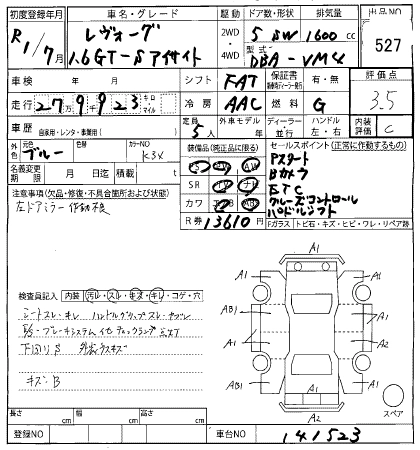 初度登録年月 車名・グレード 駆動 ドア数・形状 排気量 出品NO
R1/7月 レヴォーグ 2WD 5 SW 1600cc 527
1.6GT-Sアイサイト 4WD 型式 DBA-VM4
車検 年 月 シフト FAT 保証書 有・無 評価点
走行 27万9923 キロ・マイル 冷房 AAC 燃料 G 3.5
車歴 自家用・レンタ・事業用( ) 定員 5人 外車モデル 年 ディーラー・並行 ハンドル 左・右 内装評価 C
外色 元色 ブルー 色替 カラーNO K3X 装備品(純正品に限る) セールスポイント(正常に作動するもの)
名義変更期限 月 日迄 積載 t SR
Pスタート
Bカメラ
ETC
注意事項(欠品・修復・不具合箇所および状態) カワ
クルーズコントロール
左ドアミラー作動不良 R券 13610円 パドルシフト
Fガラス トビ石・キズ・ヒビ・ワレ・リペア跡
検査員記入 内装 汚レ・スレ・キズ・キレ・コゲ・穴
シートスレ・キレ ハンドルグリップスレ
下回りS
キズB
A1
A1 A1
AB1 A1
A1 A2
AB1 A1 A1
A2
スペア
長さ cm 幅 cm 高さ cm
登録NO 車台NO 141523